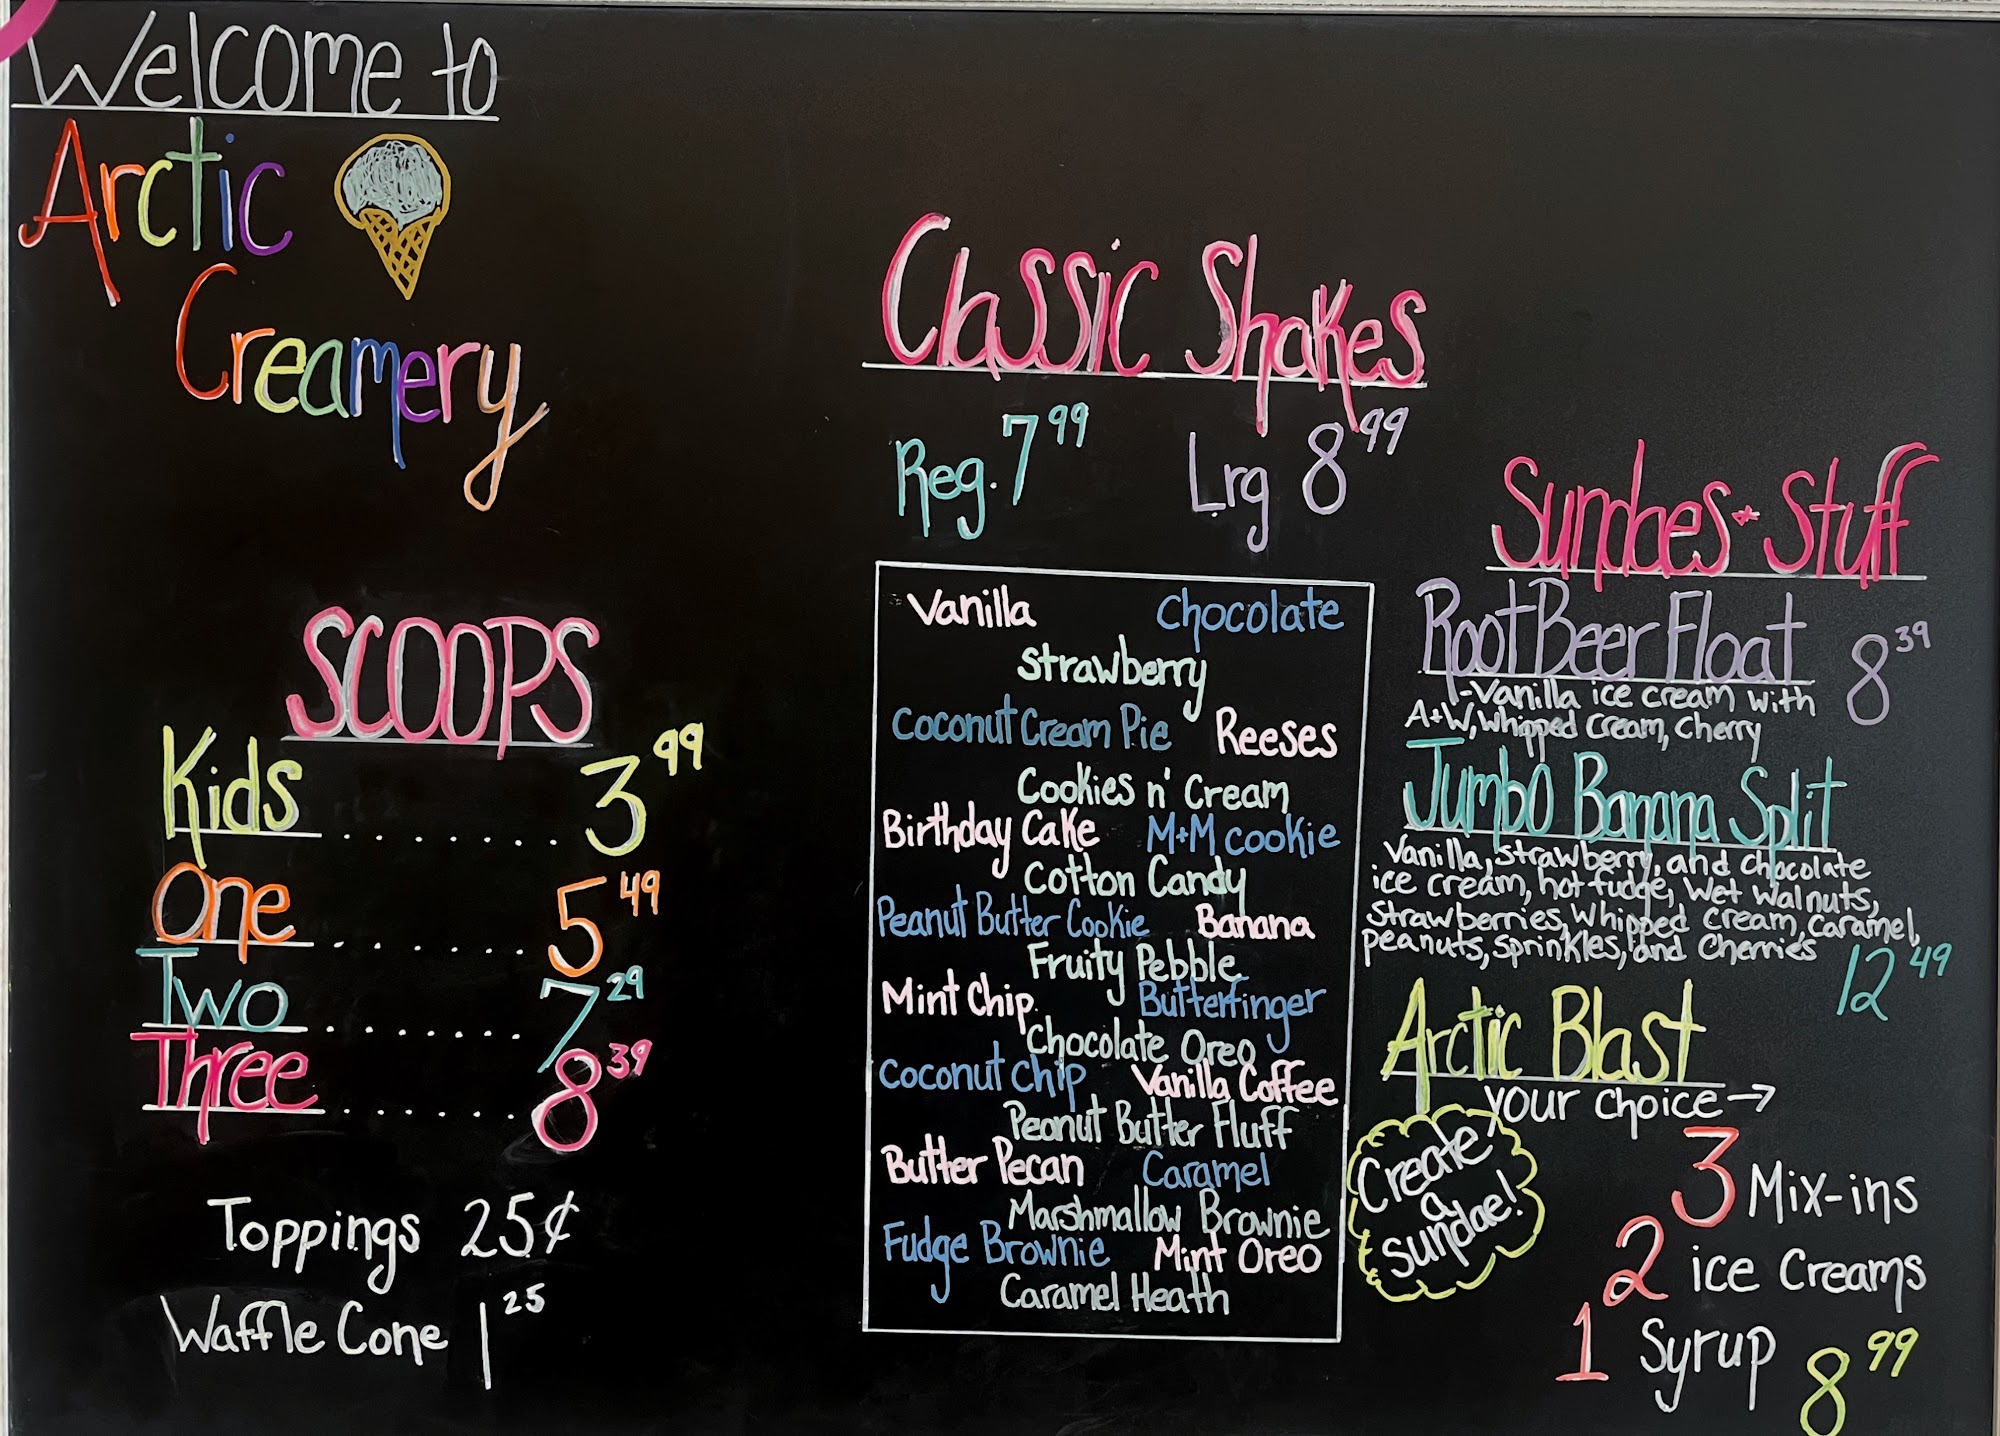 Welcome to
Arctic
Creamery
SCOOPS
Kids ........ 3.99
One ........ 5.49
Two ........ 7.29
Three ....... 8.39
Toppings 25¢
Waffle Cone 1.25
Classic Shakes
Reg. 7.99 Lrg 8.99
Vanilla Chocolate
Strawberry
Coconut Cream Pie Reeses
Cookies n' Cream
Birthday Cake M+M Cookie
Cotton Candy
Peanut Butter Cookie Banana
Fruity Pebble
Mint Chip Butterfinger
Chocolate Oreo
Coconut Chip Vanilla Coffee
Peanut Butter Fluff
Butter Pecan Caramel
Marshmallow Brownie
Fudge Brownie Mint Oreo
Caramel Heath
Sundaes + Stuff
Root Beer Float 8.39
-Vanilla ice cream with
A+W, Whipped Cream, Cherry
Jumbo Banana Split
Vanilla, Strawberry, and Chocolate
ice cream, hot fudge, Wet Walnuts,
Strawberries, Whipped Cream, Caramel,
peanuts, sprinkles, and Cherries
12.49
Arctic Blast
your choice →
3 Mix-ins
2 ice Creams
1 Syrup 8.99
Create
a
sundae!